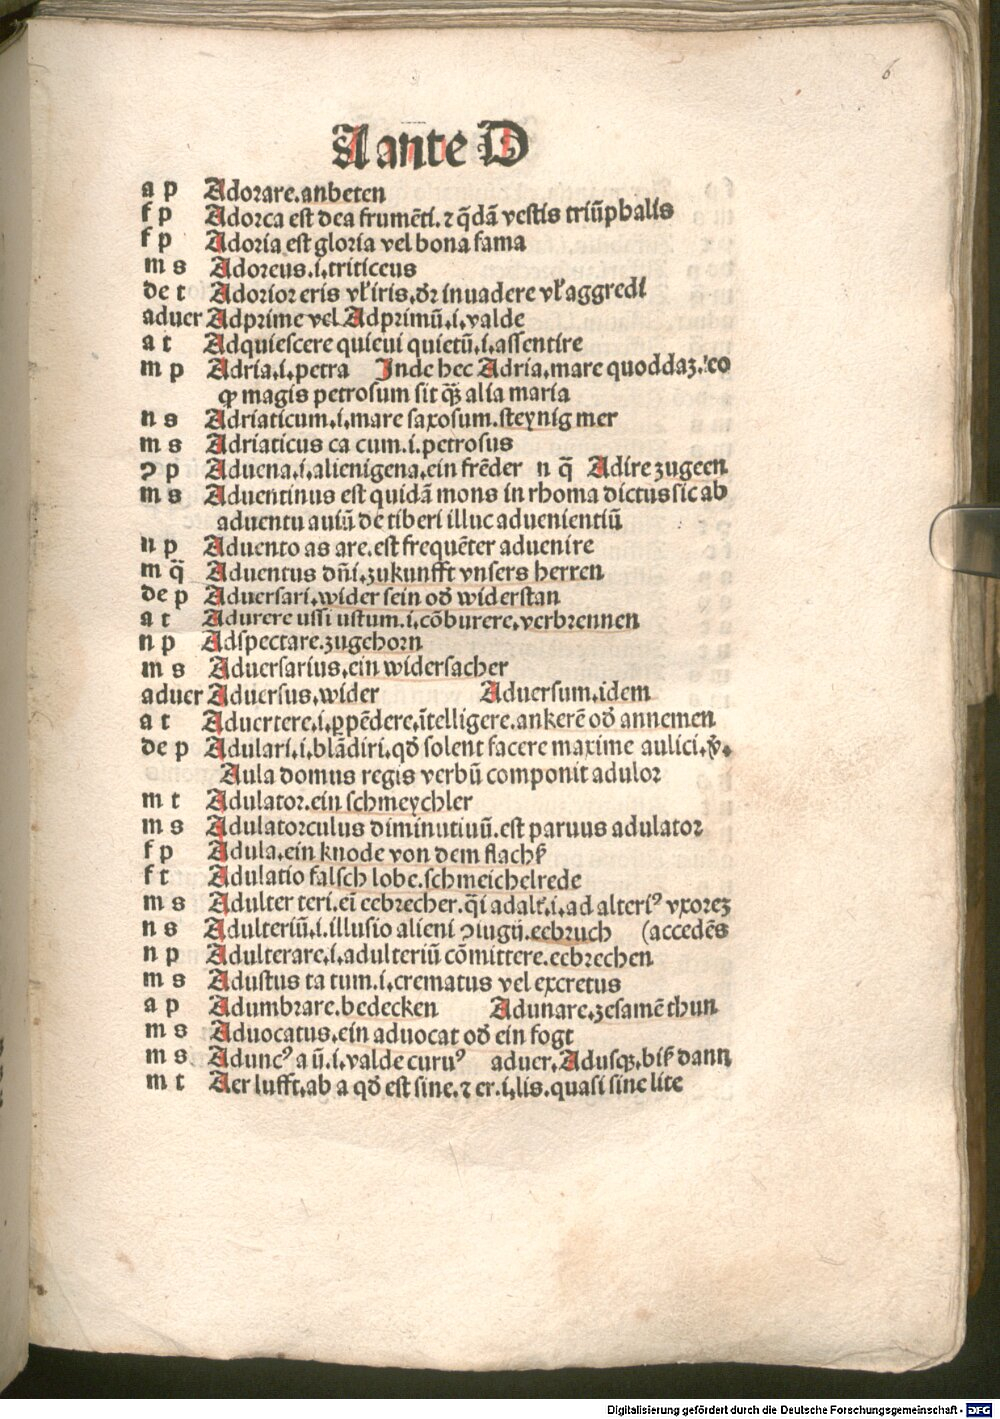 6
A ante D
a p Adorare.anbeten
f p Adorea est dea frumēti.⁊ q̄dā vestis triūphalis
f p Adoria est gloria vel bona fama
m s Adoreus.i.triticeus
de t Adorior eris vl̕ iris.dr̄ inuadere vl̕ aggredi
aduer Adprime vel Adprimū.i.valde
a t Adquiescere quieui quietū.i.assentire
m p Adria.i.petra Inde hec Adria.mare quoddaꝫ.eo
ꝙ magis petrosum sit qꝫ̄ alia maria
n s Adriaticum.i.mare saxosum.steynig mer
m s Adriaticus ca cum.i.petrosus
ꝯ p Aduena.i.alienigena.ein frēder n q̄ Adire zugeen
m s Aduentinus est quidā mons in rhoma dictus sic ab
aduentu auiū de tiberi illuc aduenientiū
n p Aduento as are.est frequēter aduenire
m q̄ Aduentus dn̄i.zukunfft vnsers herren
de p Aduersari.wider sein od̕ widerstan
a t Adurere ussi ustum.i.cōburere.verbrennen
n p Adspectare.zugehorn
m s Aduersarius.ein widersacher
aduer Aduersus.wider Aduersum.idem
a t Aduertere.i.ꝑpēdere.ītelligere.ankerē od̕ annemen
de p Adulari.i.blādiri.qd̕ solent facere maxime aulici.ꝟ.
Aula domus regis verbū componit adulor
m t Adulator.ein schmeychler
m s Adulatorculus diminutiuū.est paruus adulator
f p Adula.ein knode von dem flachß
f t Adulatio falsch lobe.schmeichelrede
m s Adulter teri.eī eebrecher.q̄i adalt̕.i.ad alteriꝰ vxoreꝫ
n s Adulteriū.i.illusio alieni ꝯiugii.eebruch (accedēs
n p Adulterare.i.adulteriū cōmittere.eebrechen
m s Adustus ta tum.i.crematus vel excretus
a p Adumbrare.bedecken Adunare.zesamē thun
m s Aduocatus.ein aduocat od̕ ein fogt
m s Aduncꝰ a ū.i.valde curuꝰ aduer.Adusqꝫ.biß dann
m t Aer lufft.ab a qd̕ est sine.⁊ er.i.lis.quasi sine lite
Digitalisierung gefördert durch die Deutsche Forschungsgemeinschaft - DFG